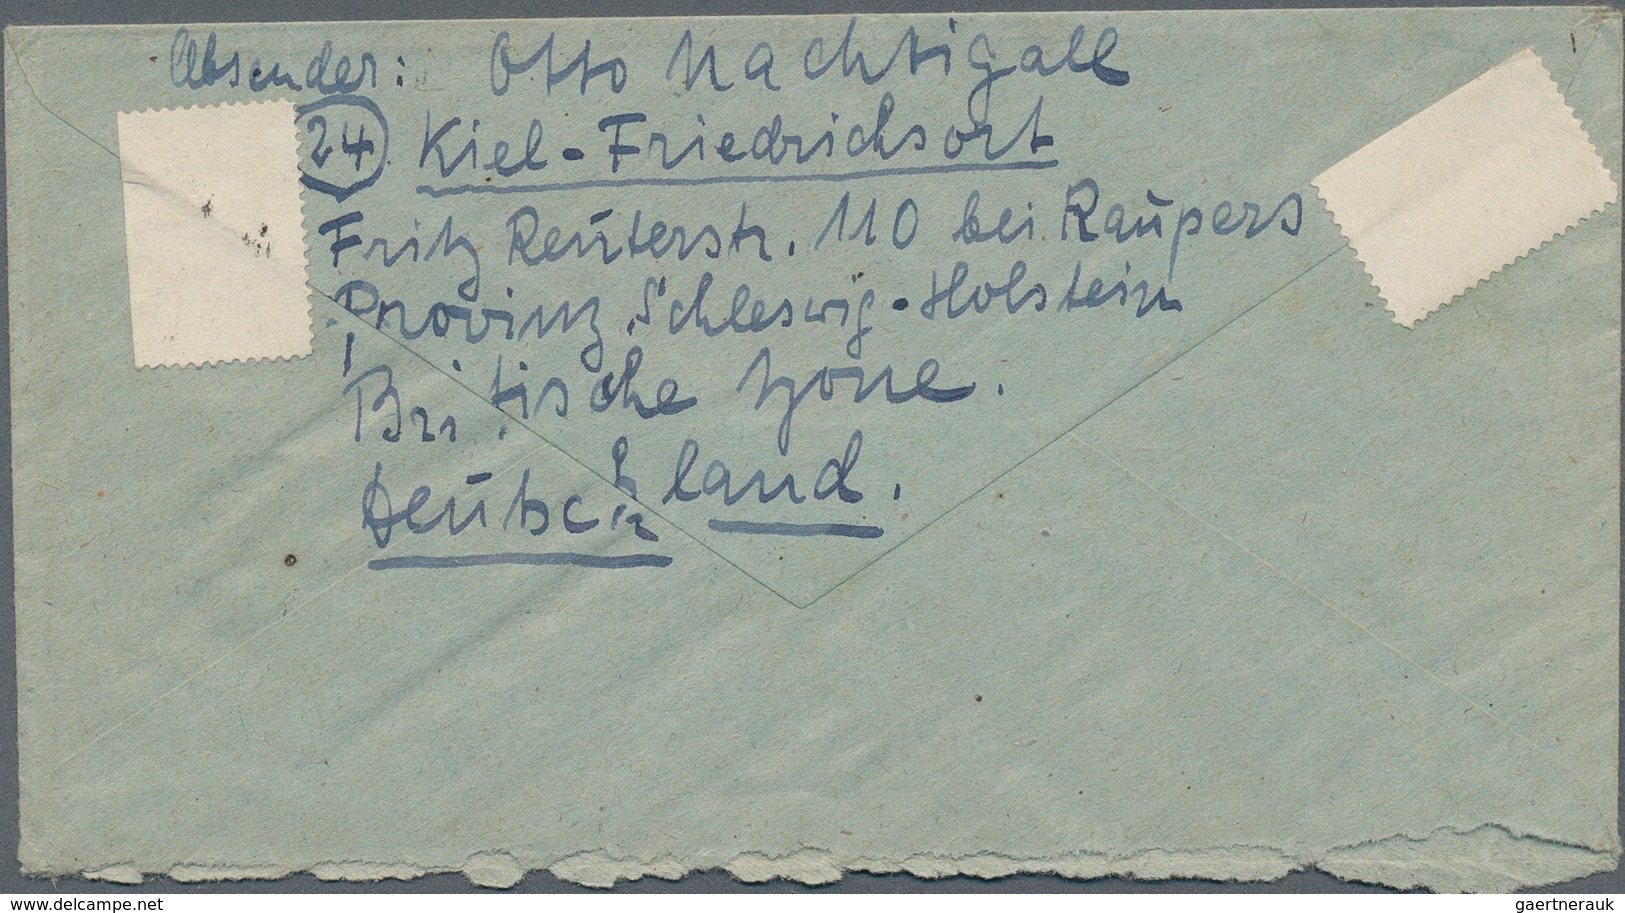 Absender: Otto Nachtigall
24 Kiel-Friedrichsort
Fritz Reuterstr. 110 bei Raupers
Provinz Schleswig-Holstein
Britische Zone.
Deutschland.
delcampe.net
gaertnerauk